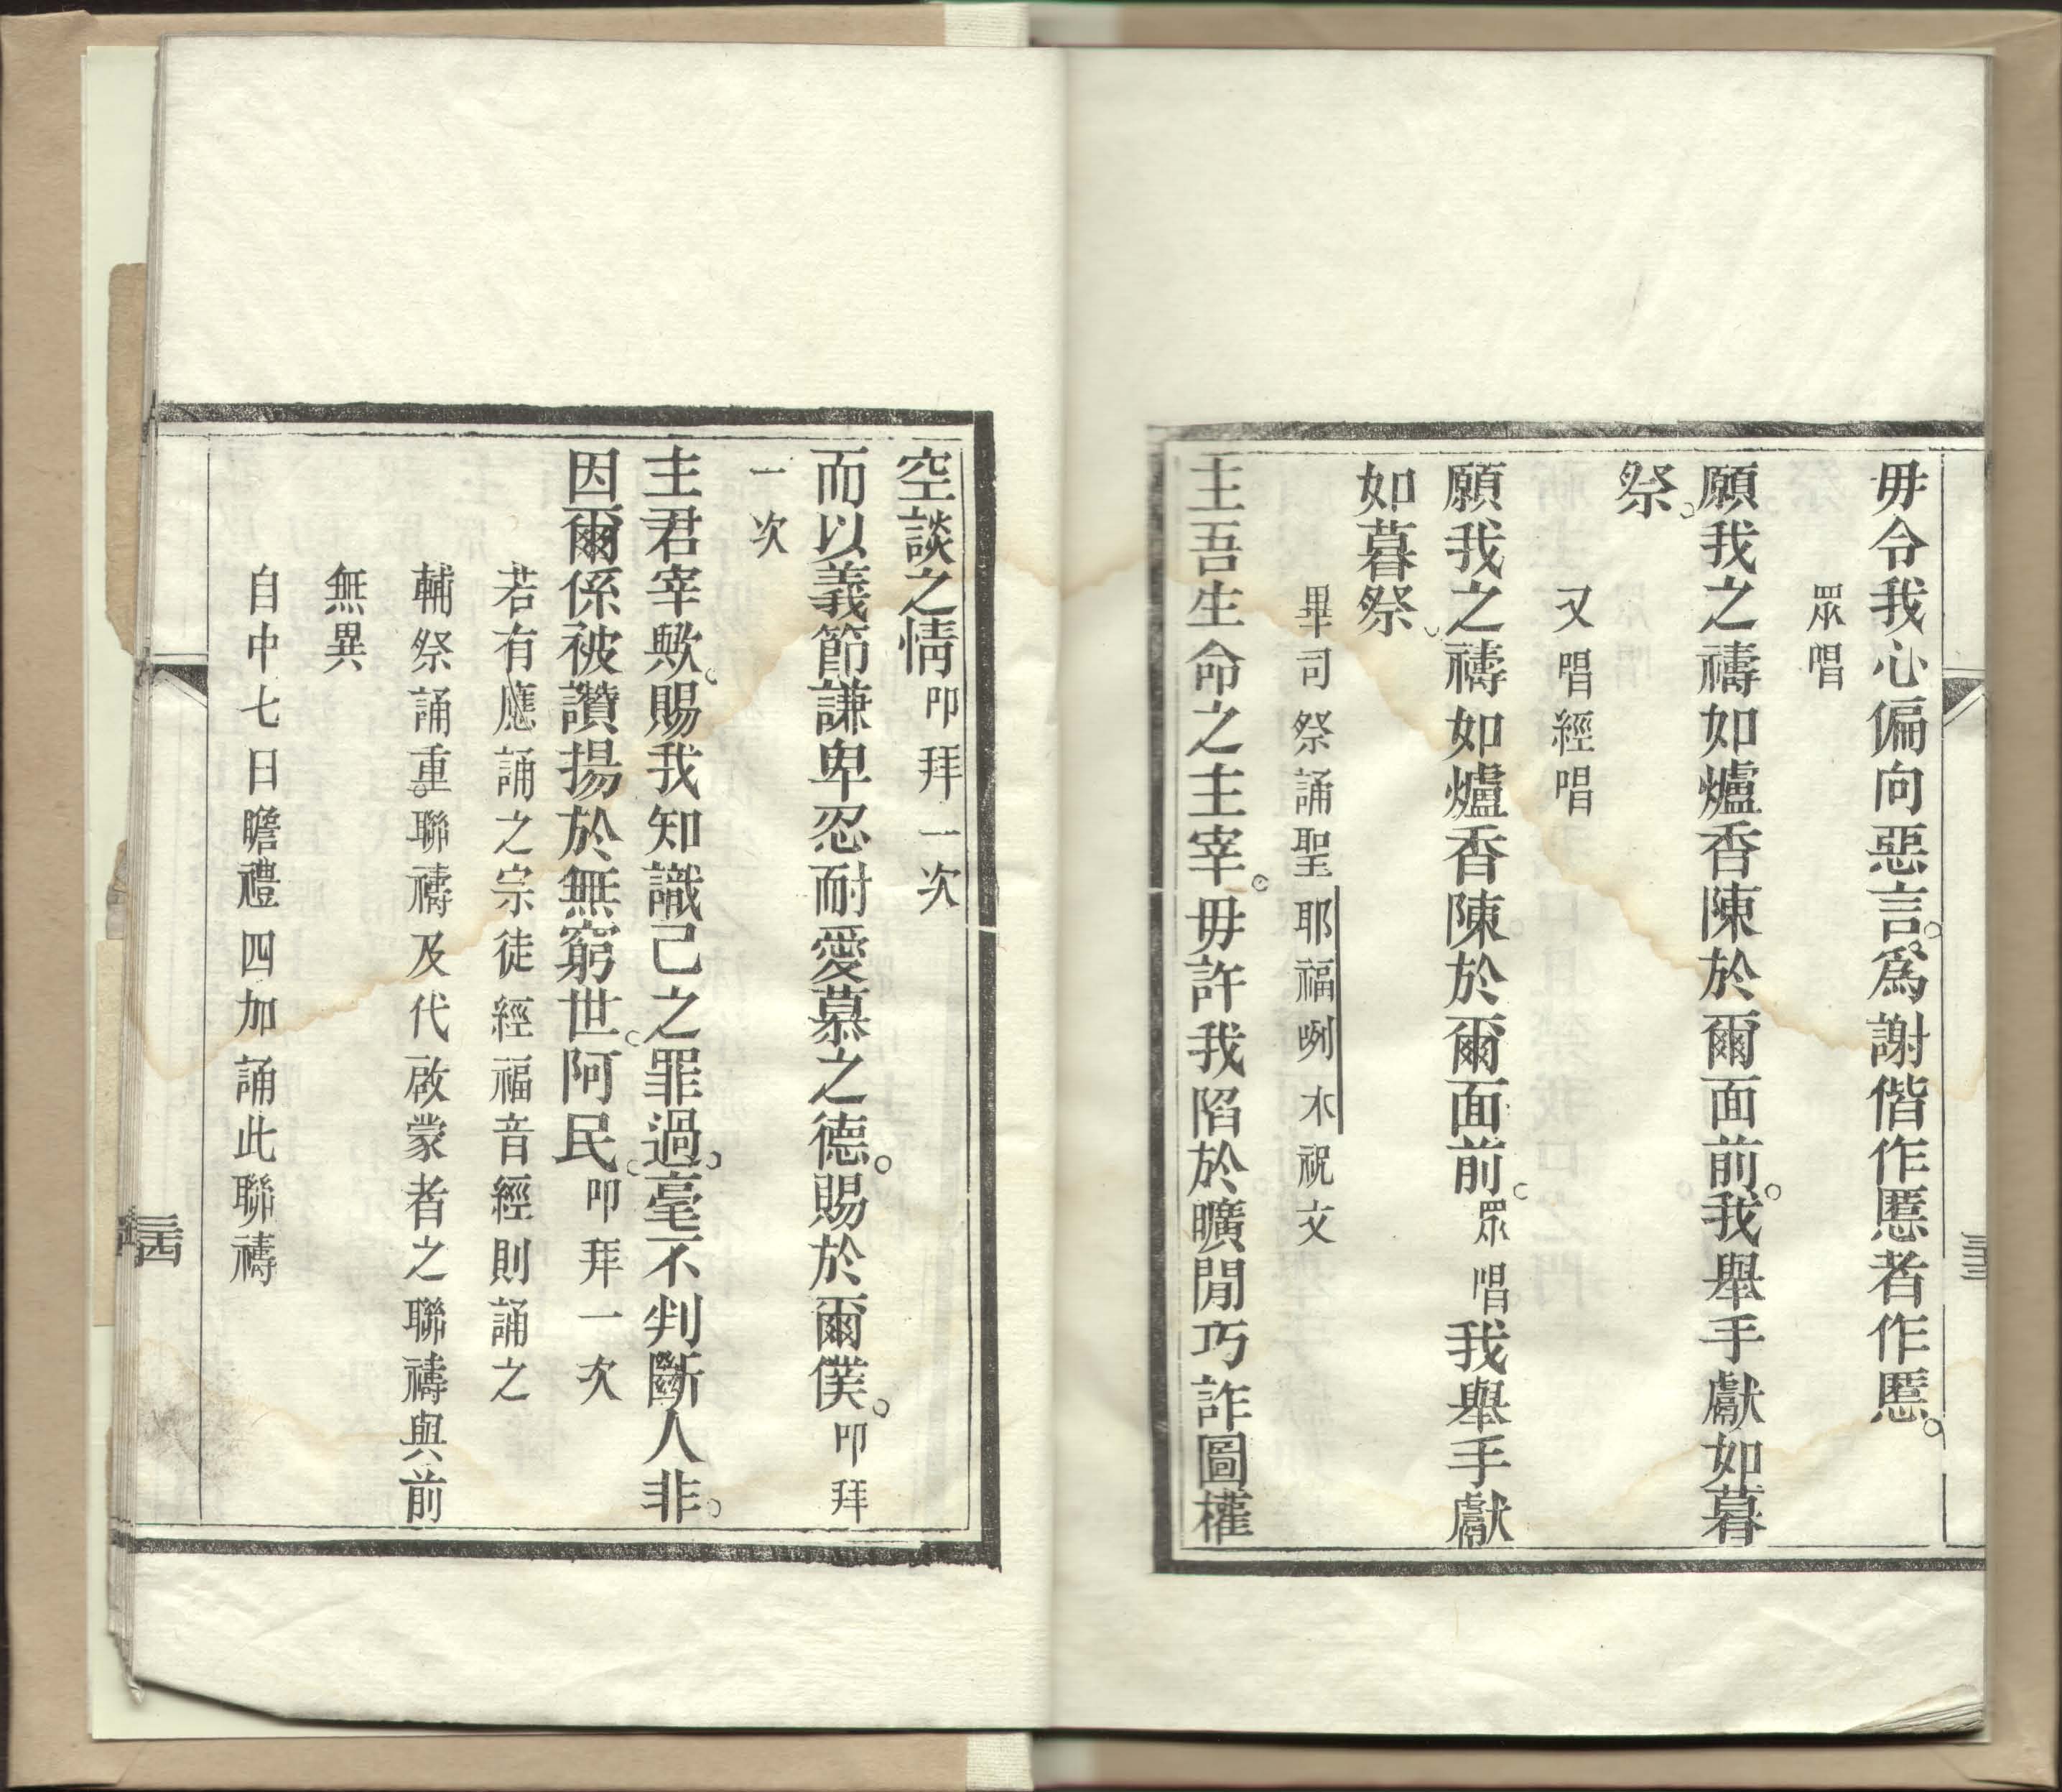 毋令我心偏向惡言。爲謝偕作慝者作慝。
眾唱
願我之禱如爐香陳於爾面前。我舉手獻如暮
祭。
又唱經唱
願我之禱如爐香陳於爾面前。眾唱我舉手獻
如暮祭。
畢司祭誦聖耶福咧木祝文
主吾生命之主宰。毋許我陷於曠閒巧詐圖權
空談之情叩拜一次
而以義節謙卑忍耐愛慕之德。賜於爾僕。叩拜
一次
主君宰歟。賜我知識己之罪過。毫不判斷人非。
因爾係被讚揚於無窮世。阿民。叩拜一次
若有應誦之宗徒經福音經則誦之
輔祭誦重。聯禱及代啟蒙者之聯禱與前
無異
自中七日瞻禮四加誦此聯禱